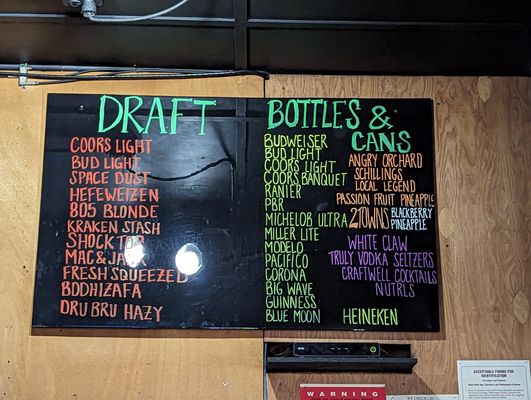 DRAFT
COORS LIGHT
BUD LIGHT
SPACE DUST
HEFEWEIZEN
805 BLONDE
KRAKEN STASH
SHOCK TOP
MAC & JACK
FRESH SQUEEZED
BODHIZAFA
DRU BRU HAZY
BOTTLES &
CANS
BUDWEISER
BUD LIGHT
COORS LIGHT
COORS BANQUET
RANIER
PBR
MICHELOB ULTRA
MILLER LITE
MODELO
PACIFICO
CORONA
BIG WAVE
GUINNESS
BLUE MOON
ANGRY ORCHARD
SCHILLINGS
LOCAL LEGEND
PASSION FRUIT PINEAPPLE
2TOWNS BLACKBERRY
PINEAPPLE
WHITE CLAW
TRULY VODKA SELTZERS
CRAFTWELL COCKTAILS
NUTRLS
HEINEKEN
WARNING
WE CHECK I.D.
ACCEPTABLE FORMS FOR
IDENTIFICATION